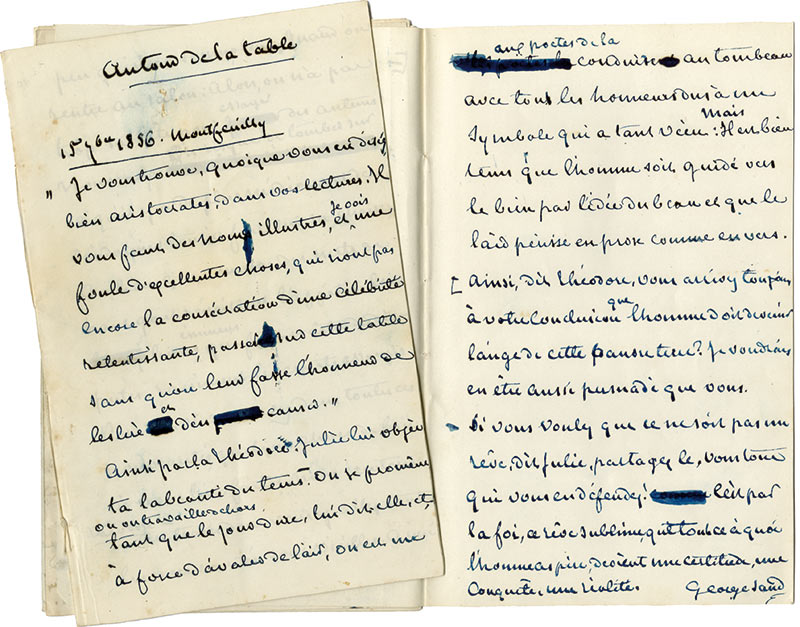 Autour de la table
15 7bre 1856. Montfeuilly
" Je vous trouve, quoique vous en disiez
bien aristocrates, dans vos lectures. Il
vous faut des noms illustres, et
je vois
une
foule d'excellentes choses, qui n'ont pas
encore la consécration d'une célébrité
retentissante, passer sur cette table
sans qu'on leur fasse l'honneur de
les lire
et
d'en
causer. "
Ainsi parla Théodore. Julie lui objec
ta la beauté du tems. On se promène
ou on travaille dehors
tant que le jour dure, lui dit-elle, et,
à force d'avaler de l'air, on est un
aux poètes de la
conduire au tombeau
avec tous les honneurs dus à un
symbole qui a tant vécu :
Mais
Il est bien
tems que l'homme soit guidé vers
le bien par l'idée du beau et que le
laid périsse en prose comme en vers.
[ Ainsi, dit Théodore, vous arrivez toujours
à votre conclusion
que
l'homme doit devenir
l'ange de cette pauvre terre ? Je voudrais
en être aussi persuadé que vous.
Si vous voulez que ce ne soit pas un
rêve, dit Julie, partagez le, vous tous
qui vous en défendez !
C'est par
la foi, ce rêve sublime, que tout ce à quoi
l'homme aspire, devient une certitude, une
conquête, une réalité. George Sand